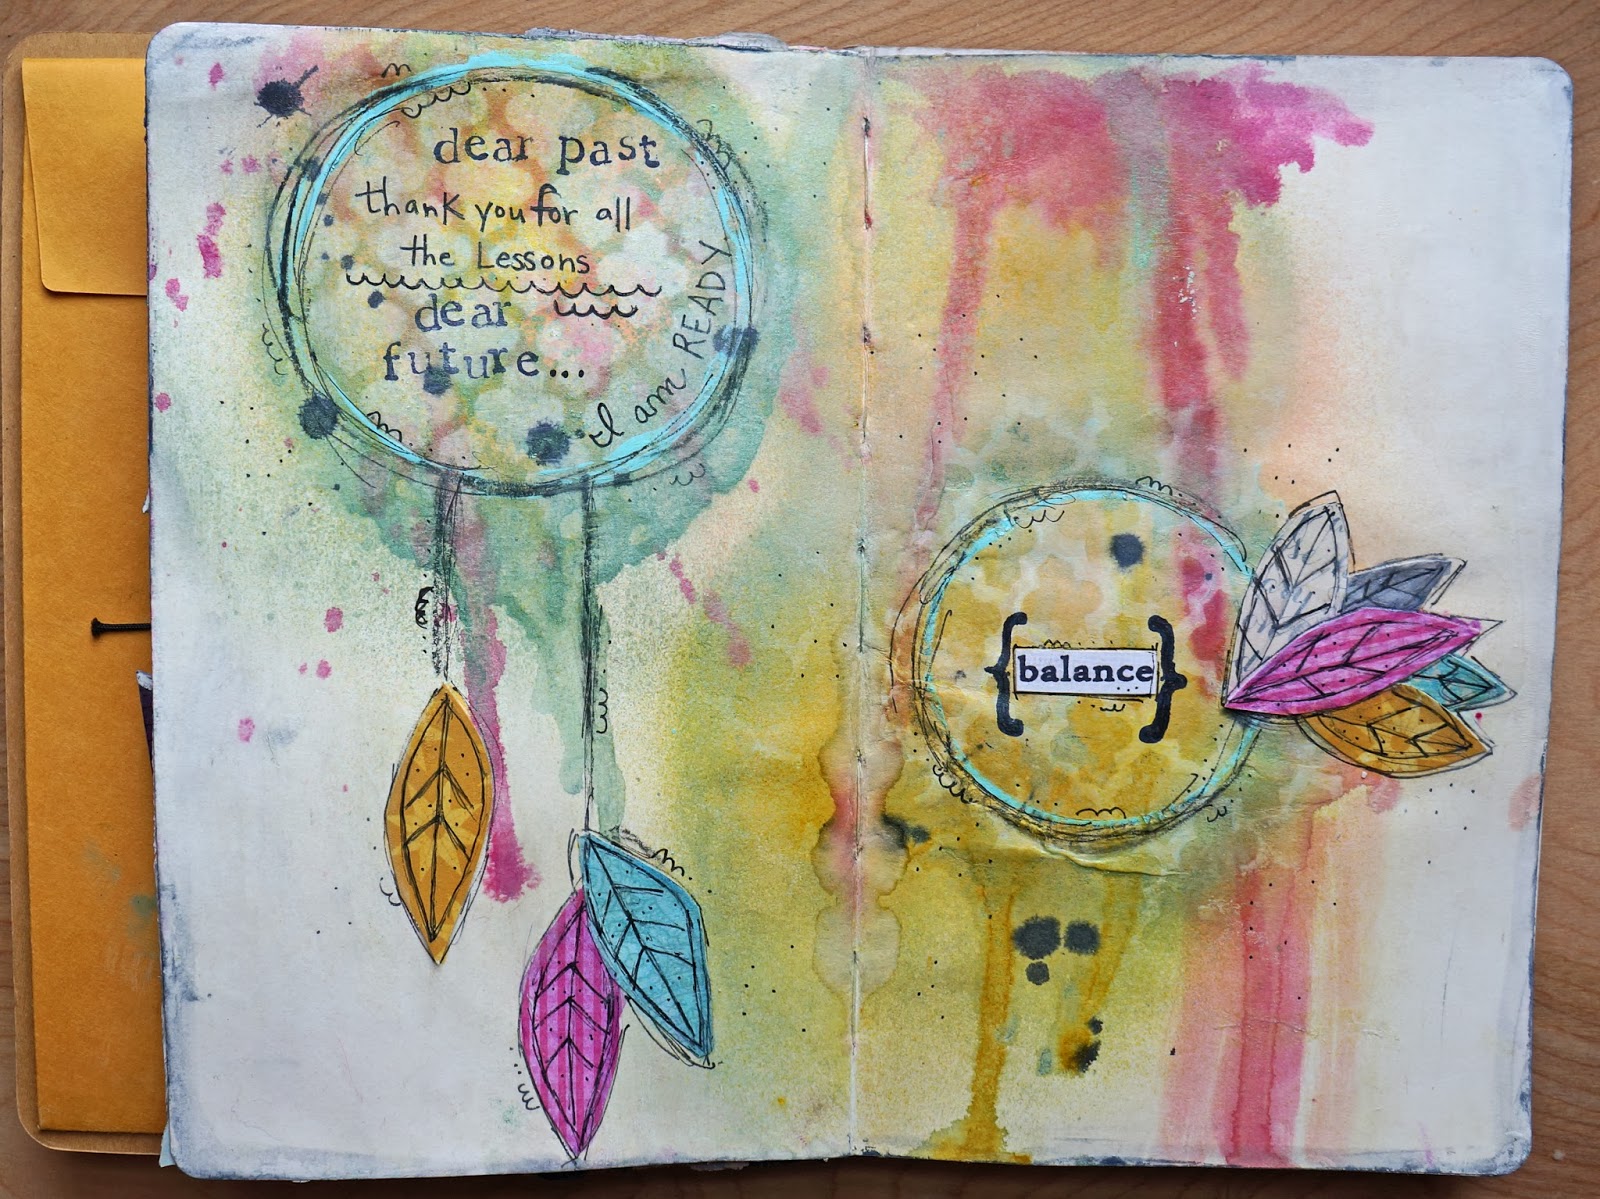 dear past
thank you for all
the Lessons
dear
future...
I am READY
{balance}